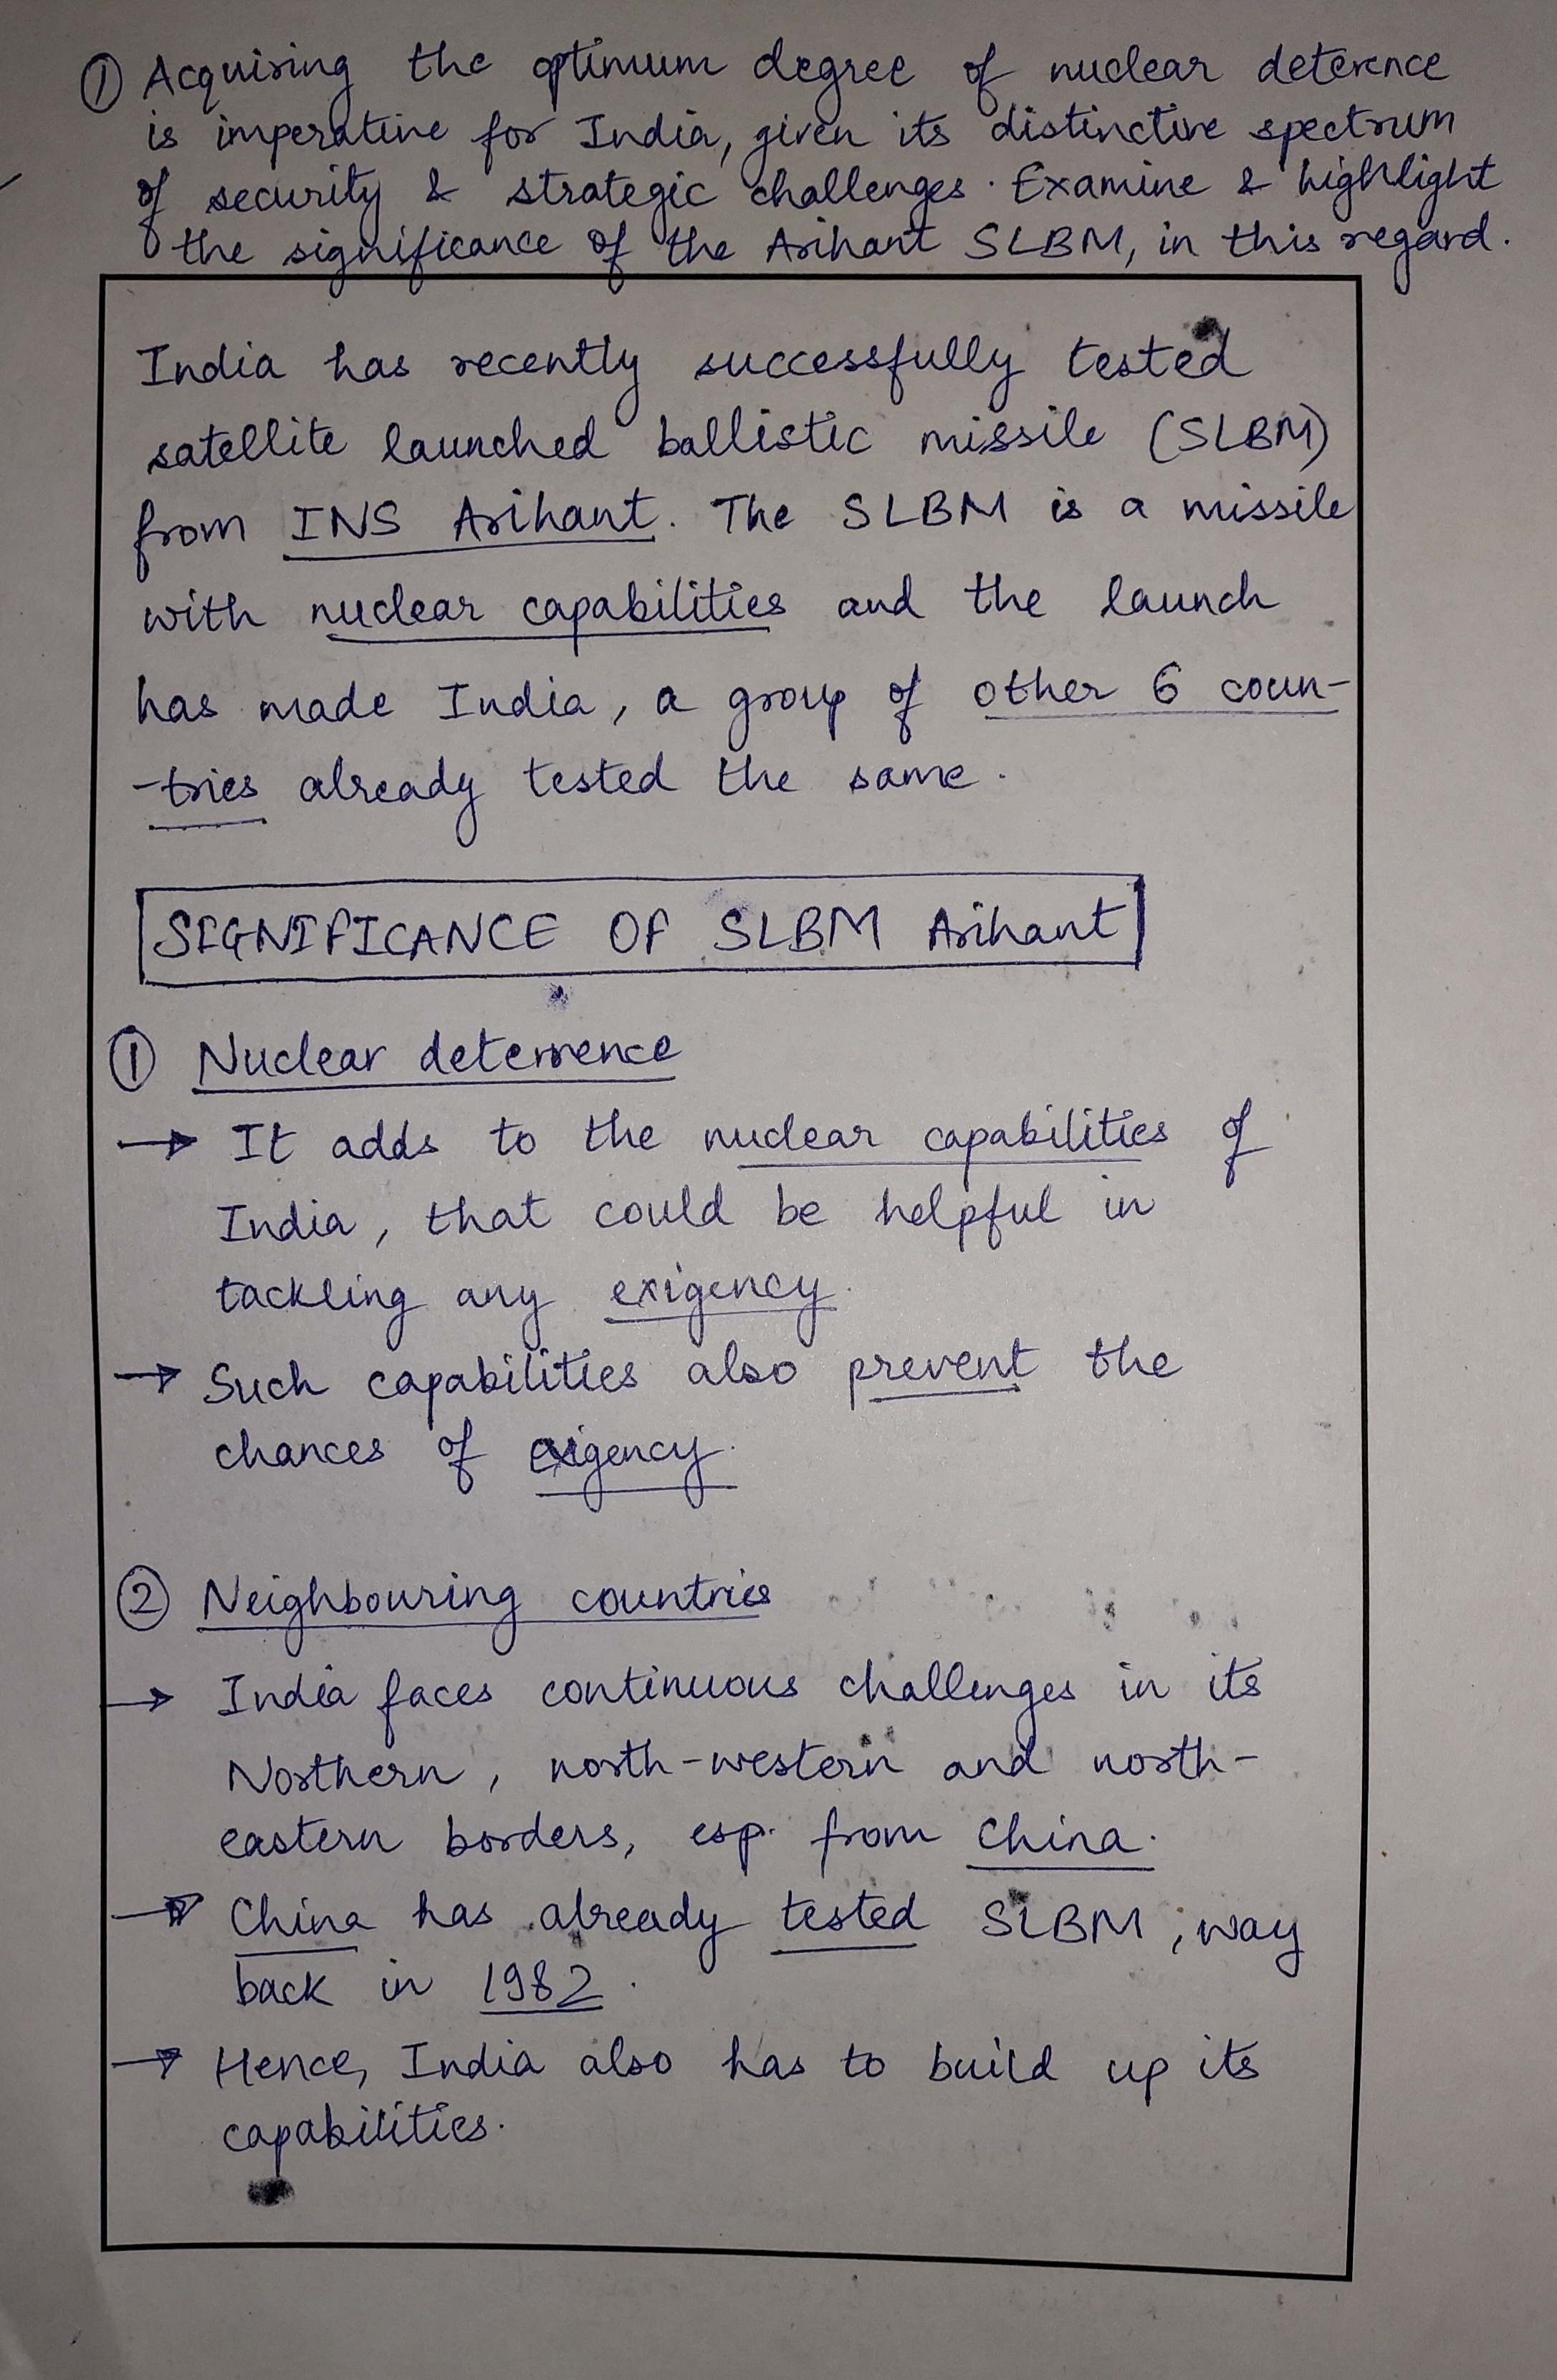 ① Acquiring the optimum degree of nuclear deterence
is imperative for India, given its distinctive spectrum
of security & strategic challenges. Examine & highlight
the significance of the Arihant SLBM, in this regard.
India has recently successfully tested
satellite launched ballistic missile (SLBM)
from INS Arihant. The SLBM is a missile
with nuclear capabilities and the launch
has made India, a group of other 6 coun-
-tries already tested the same.
SIGNIFICANCE OF SLBM Arihant
① Nuclear deterrence
→ It adds to the nuclear capabilities of
India, that could be helpful in
tackling any exigency.
→ Such capabilities also prevent the
chances of exigency.
② Neighbouring countries
→ India faces continuous challenges in its
Northern, north-western and north-
eastern borders, esp. from China.
→ China has already tested SLBM, way
back in 1982.
→ Hence, India also has to build up its
capabilities.